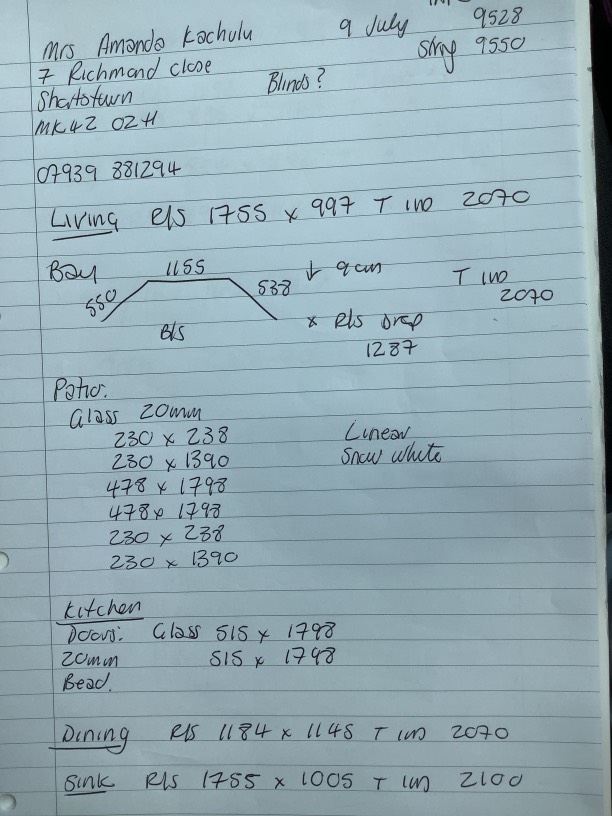 Mrs Amanda Kachulu 9 July 9528
7 Richmond Close String 9550
Shortstown Blinds?
MK42 0ZH
07939 881294
Living R/S 1755 x 997 T IND 2070
Bay 1155 ↓ 9cm T IND
550 538 2070
B/S x R/S Drop
1287
Patio:
Glass 20mm
230 x 238 Linear
230 x 1390 Snow white
478 x 1798
478 x 1798
230 x 238
230 x 1390
Kitchen
Doors: Glass 515 x 1798
20mm 515 x 1798
Bead.
Dining R/S 1184 x 1145 T IND 2070
Sink R/S 1755 x 1005 T IND 2100